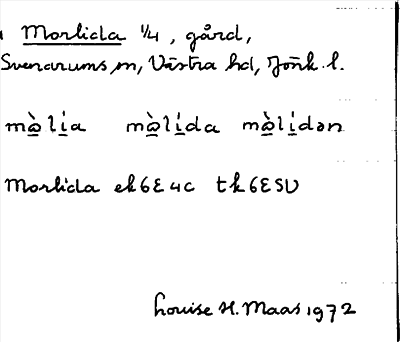 Morlida 1/4, gård,
Svenarums sn, Västra hd, Jönk. l.
mə̀lı́a mə̀lı́da mə̀lı́dən
Morlida ek6E4c tk6ESU
Louise H. Maas 1972